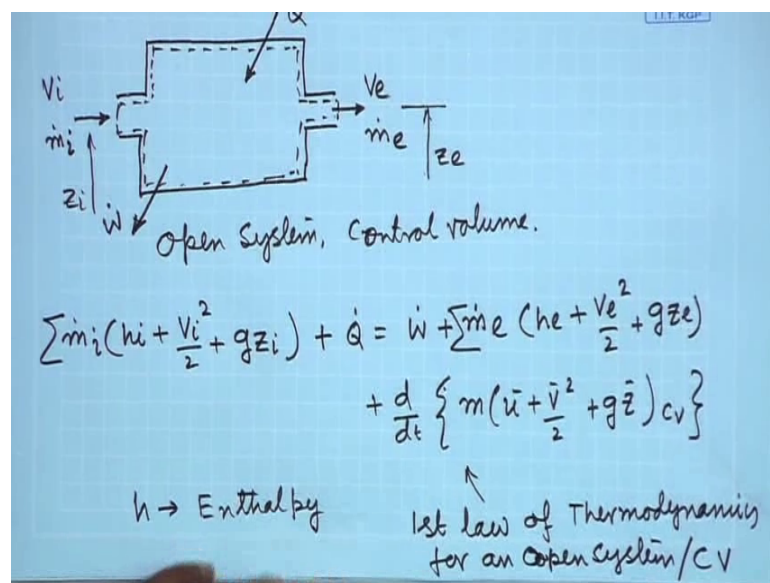 I.I.T. KGP
Q
Vi
ṁi
zi
Ẇ
Ve
ṁe
ze
Open System, Control volume.
∑ṁi(hi + Vi²/2 + gzi) + Q̇ = Ẇ + ∑ṁe (he + Ve²/2 + gze)
+ d/dt { m(ū + v̄²/2 + gz̄)cv}
h → Enthalpy
1st law of Thermodynamics
for an open system/CV